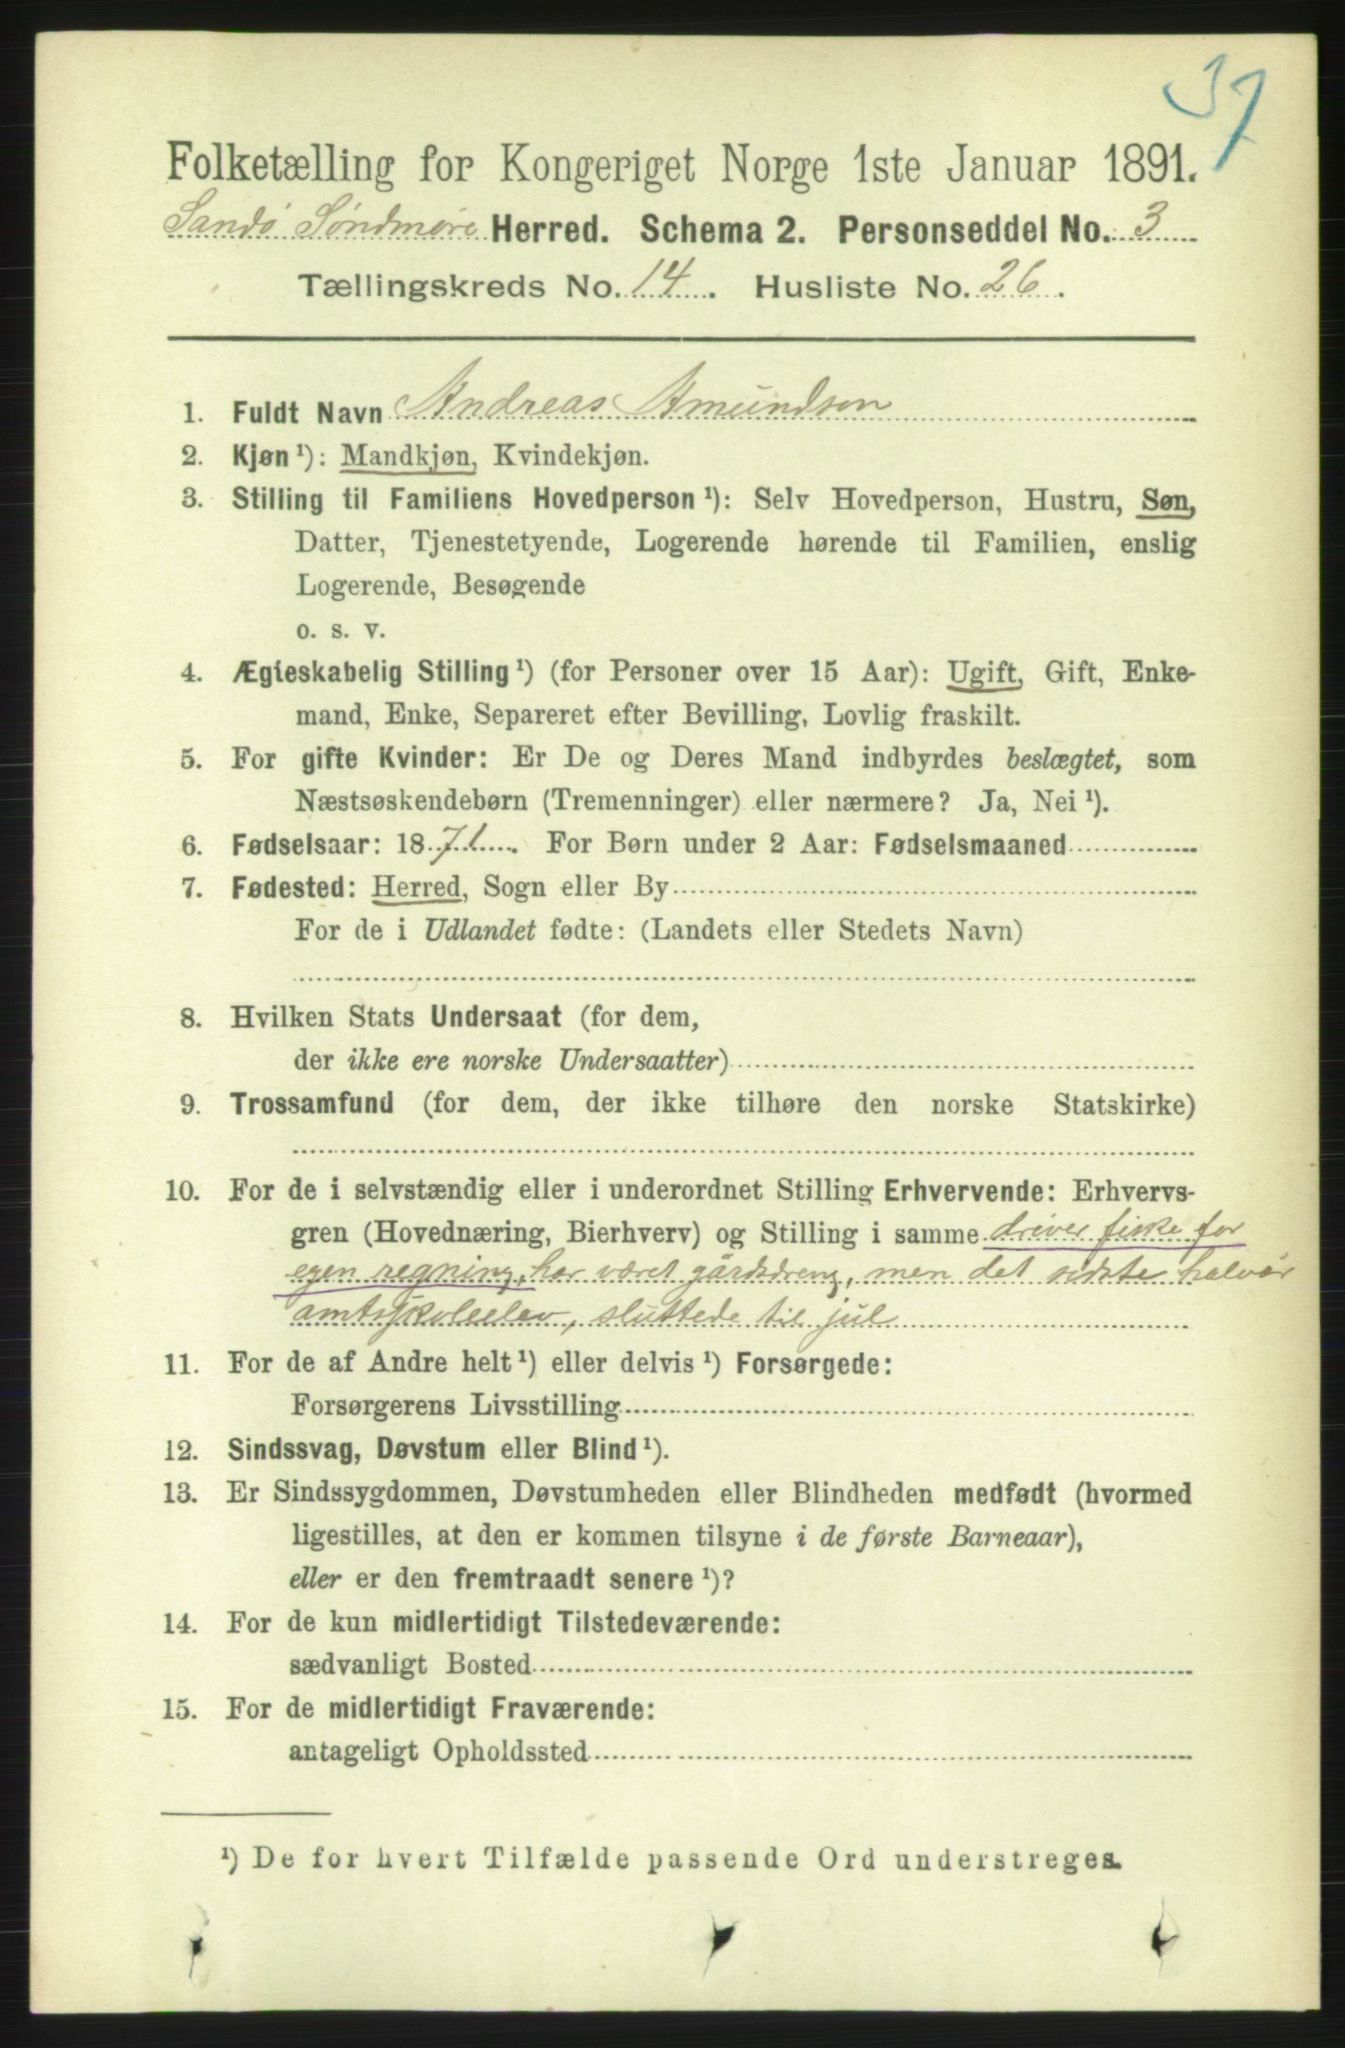 37
Folketælling for Kongeriget Norge 1ste Januar 1891.
Sandø Søndmøre Herred. Schema 2. Personseddel No. 3
Tællingskreds No. 14. Husliste No. 26.
1. Fuldt Navn Andreas Amundson
2. Kjøn ¹): Mandkjøn, Kvindekjøn.
3. Stilling til Familiens Hovedperson ¹): Selv Hovedperson, Hustru, Søn,
Datter, Tjenestetyende, Logerende hørende til Familien, enslig
Logerende, Besøgende
o. s. v.
4. Ægteskabelig Stilling ¹) (for Personer over 15 Aar): Ugift, Gift, Enke-
mand, Enke, Separeret efter Bevilling, Lovlig fraskilt.
5. For gifte Kvinder: Er De og Deres Mand indbyrdes beslægtet, som
Næstsøskendebørn (Tremenninger) eller nærmere? Ja, Nei ¹).
6. Fødselsaar: 1871. For Børn under 2 Aar: Fødselsmaaned
7. Fødested: Herred, Sogn eller By
For de i Udlandet fødte: (Landets eller Stedets Navn)
8. Hvilken Stats Undersaat (for dem,
der ikke ere norske Undersaatter)
9. Trossamfund (for dem, der ikke tilhøre den norske Statskirke)
10. For de i selvstændig eller i underordnet Stilling Erhvervende: Erhvervs-
gren (Hovednæring, Bierhverv) og Stilling i samme driver fiske for
egen regning, har været gårdsdreng, men det sidste halvår
amtsskoleelev, sluttede til jul
11. For de af Andre helt ¹) eller delvis ¹) Forsørgede:
Forsørgerens Livsstilling
12. Sindssvag, Døvstum eller Blind ¹).
13. Er Sindssygdommen, Døvstumheden eller Blindheden medfødt (hvormed
ligestilles, at den er kommen tilsyne i de første Barneaar),
eller er den fremtraadt senere ¹)?
14. For de kun midlertidigt Tilstedeværende:
sædvanligt Bosted
15. For de midlertidigt Fraværende:
antageligt Opholdssted
¹) De for hvert Tilfælde passende Ord understreges.